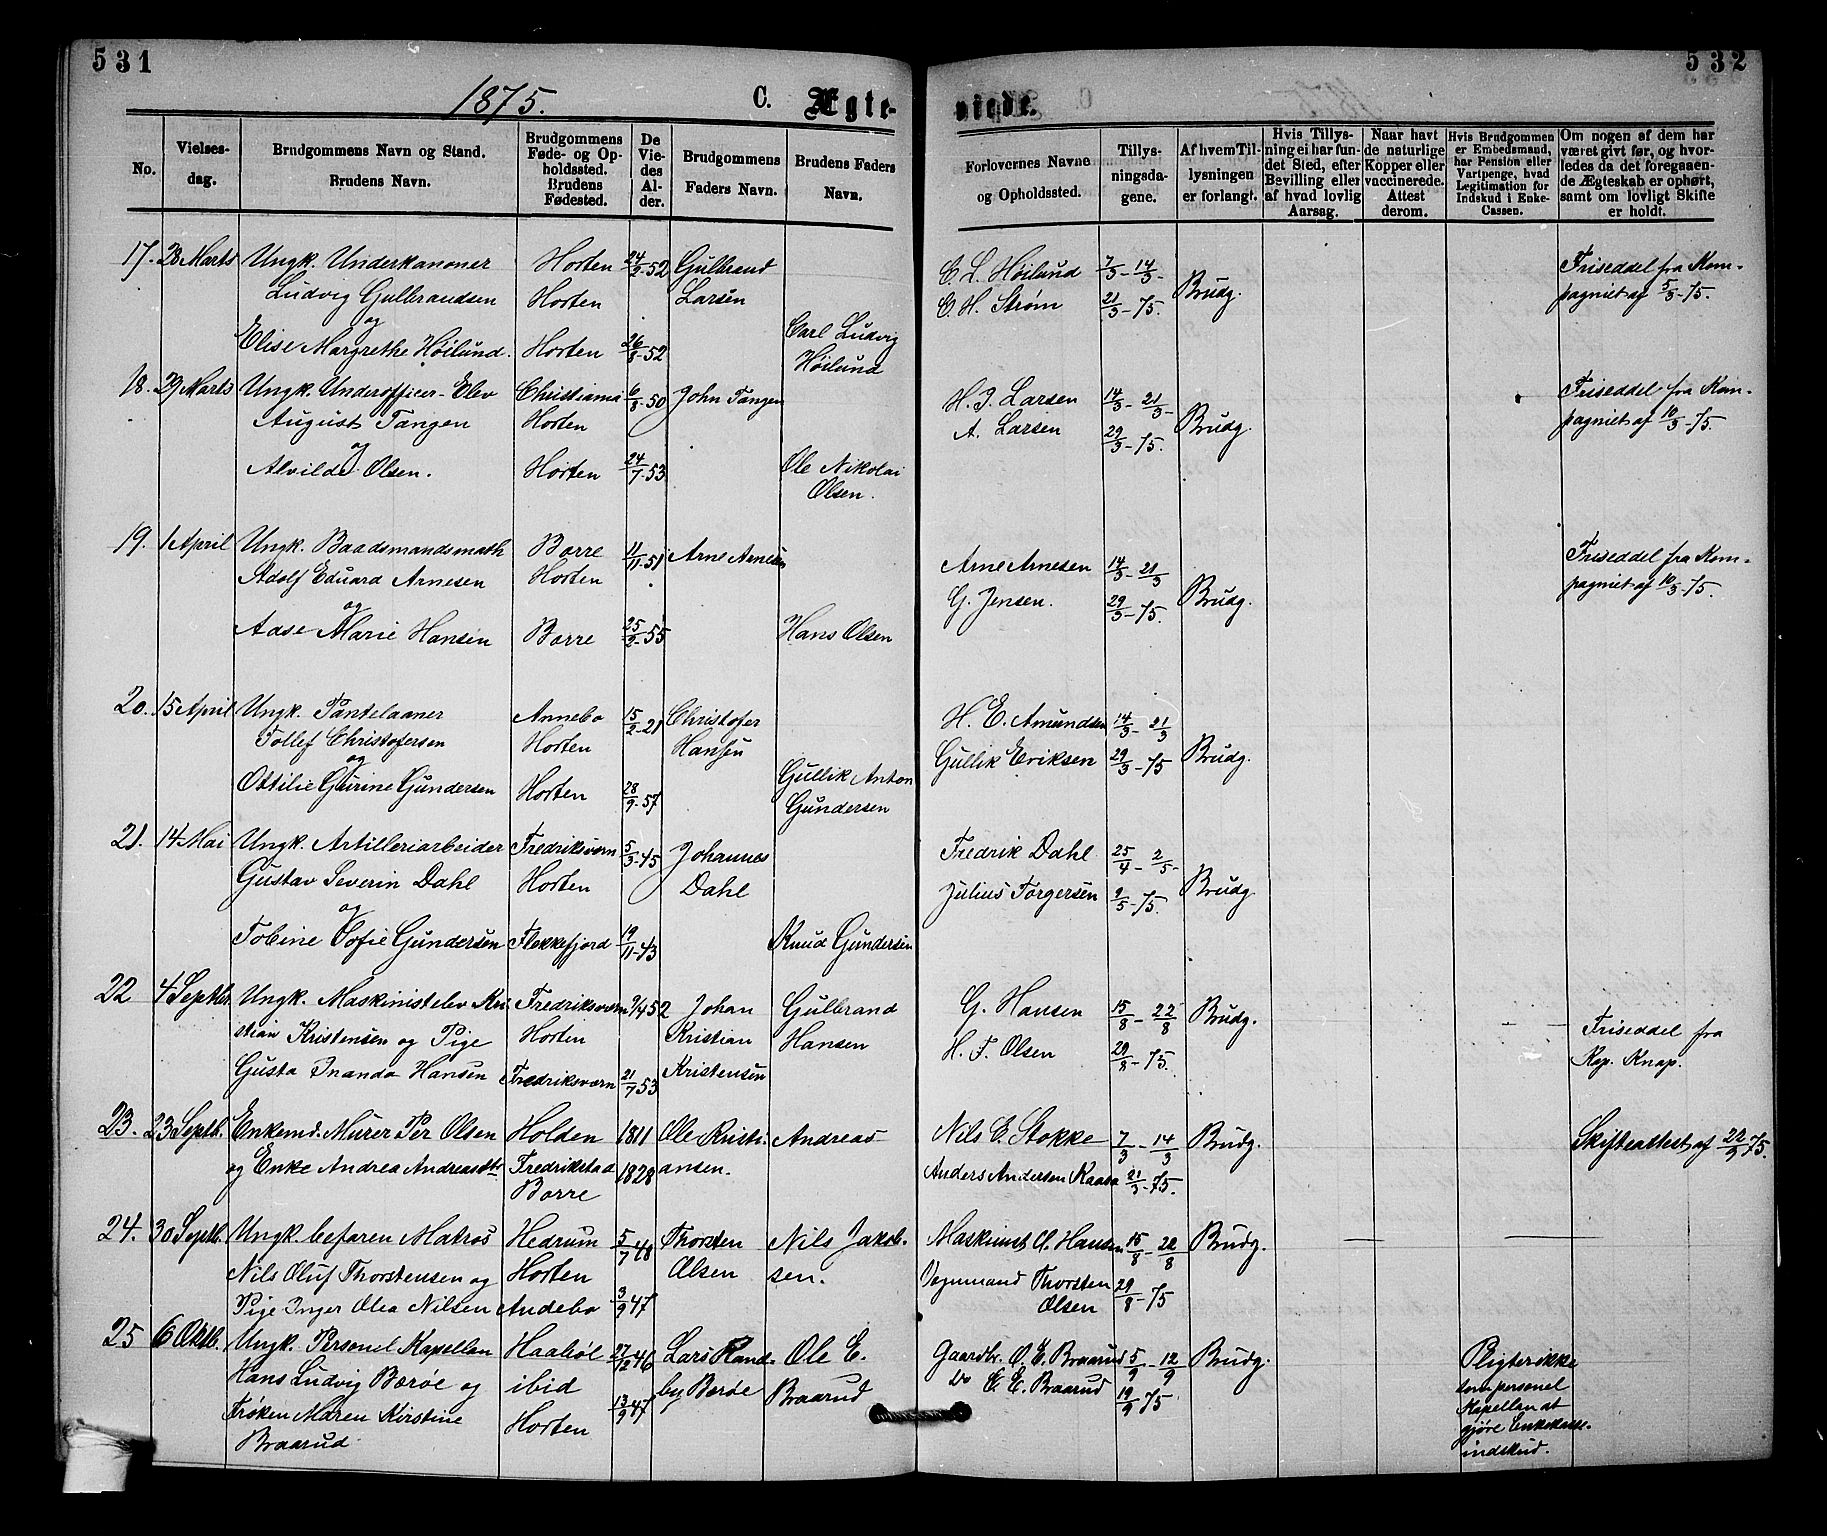 531
532
1875.
C. Ægte-
viede.
No.
Vielses-
dag.
Brudgommens Navn og Stand.
Brudens Navn.
Brudgommens
Føde- og Op-
holdssted.
Brudens
Fødested.
De
Vie-
des
Al-
der.
Brudgommens
Faders Navn.
Brudens Faders
Navn.
Forlovernes Navne
og Opholdssted.
Tillys-
ningsda-
gene.
Af hvem Til-
lysningen
er forlangt.
Hvis Tillys-
ning ei har fun-
det Sted, efter
Bevilling eller
af hvad lovlig
Aarsag.
Naar havt
de naturlige
Kopper eller
vaccinerede.
Attest
derom.
Hvis Brudgommen
er Embedsmand,
har Pension eller
Vartpenge, hvad
Legitimation for
Indskud i Enke-
Cassen.
Om nogen af dem har
været givt før, og hvor-
ledes da det foregaaen-
de Ægteskab er ophørt,
samt om lovligt Skifte
er holdt.
17. 28 Marts Ungk. Underkanoner Horten 24/2-52 Gulbrand C. L. Høilund 7/3 - 14/3 - Friseddel fra Kom-
Ludvig Gulbrandsen Horten Larsen C. H. Strøm 21/3-75. Brudg. pagniet af 5/3-75.
og
Elise Margrethe Høilund. Horten 26/8-52 Carl Ludvig
Høilund
18. 29 Marts Ungk. Underofficer-Elev Christiania 6/8-50 John Tangen H. J. Larsen 14/3 - 21/3 - Friseddel fra Kom-
August Tangen Horten A. Larsen 29/3-75. Brudg. pagniet af 10/3-75.
og
Alvilde Olsen. Horten 24/7-53 Ole Nikolai
Olsen.
19. 1 April Ungk. Baadsmandsmath Borre 11/11-51 Arne Arnesen Arne Arnesen 14/3 - 21/3 Friseddel fra Kom-
Adolf Eduard Arnesen Horten G. Jensen. 29/3-75. Brudg. pagniet af 10/3-75.
og
Aase Marie Hansen Borre 25/2-55 Hans Olsen
20. 15 April Ungk. Pantelaaner Annebo 15/2-21 Christofer H. E. Amundsen 14/3 - 21/3
Tollef Christofersen Horten Hansen Gullik Eriksen 29/3-75 Brudg.
og
Ottilie Guirine Gundersen Horten 28/9-57 Gullik Anton
Gundersen
21. 14 Mai Ungk. Artilleriarbeider Fredriksværn 5/3-45 Johannes Fredrik Dahl 25/4 - 2/5 -
Gustav Severin Dahl Horten Dahl Julius Torgersen 9/5-75. Brudg.
og
Tobine Sofie Gundersen Flekkefjord 19/11-43 Knud Gundersen
22 4 Septbr. Ungk. Maskinistelev Kri- Fredriksværn 9/4 52 Johan Gulbrand G. Hansen 15/8 - 22/8 Brudg. Friseddel fra
stian Kristensen og Pige Horten Kristian Hansen H. F. Olsen 29/8-75. Kap. Knap.
Gusta Inanda Hansen Fredriksværn 21/7 53 Kristensen
23. 23 Septb. Enkemd. Murer Per Olsen Holden 1811 Ole Kristi- Andreas Nils E. Stokke 7/3 - 14/3 Brudg. Skifteattest af 22/9 75.
og Enke Andrea Andreasdtr Fredrikstad 1828 ansen. Anders Andersen Kaasa 21/3-75.
Borre
24. 30 Septb. Ungk. befaren Matros Hedrum 5/7 48 Thorsten Nils Jakob- Maskinist A. Hansen 15/8 - 22/8 Brudg.
Nils Oluf Thorstensen og Horten Olsen sen. Vognmand Thorsten 29/8-75
Pige Inger Olea Nilsen Andebo 3/9 47 Olsen
25 6 Oktb. Ungk. Personel Kapellan Haabøl 27/12 46 Lars Rand- Ole E. Gaardbr. O. E. Braarud 5/9 - 12/9 Brudg. Pligter ikke
Hans Ludvig Bærøe og ibid by Bærøe Braarud Do E. E. Braarud 19/9 75 som personel
Frøken Maren Kirstine Horten 13/9 47 Kapellan at
Braarud gjøre Enkekasse-
indskud.